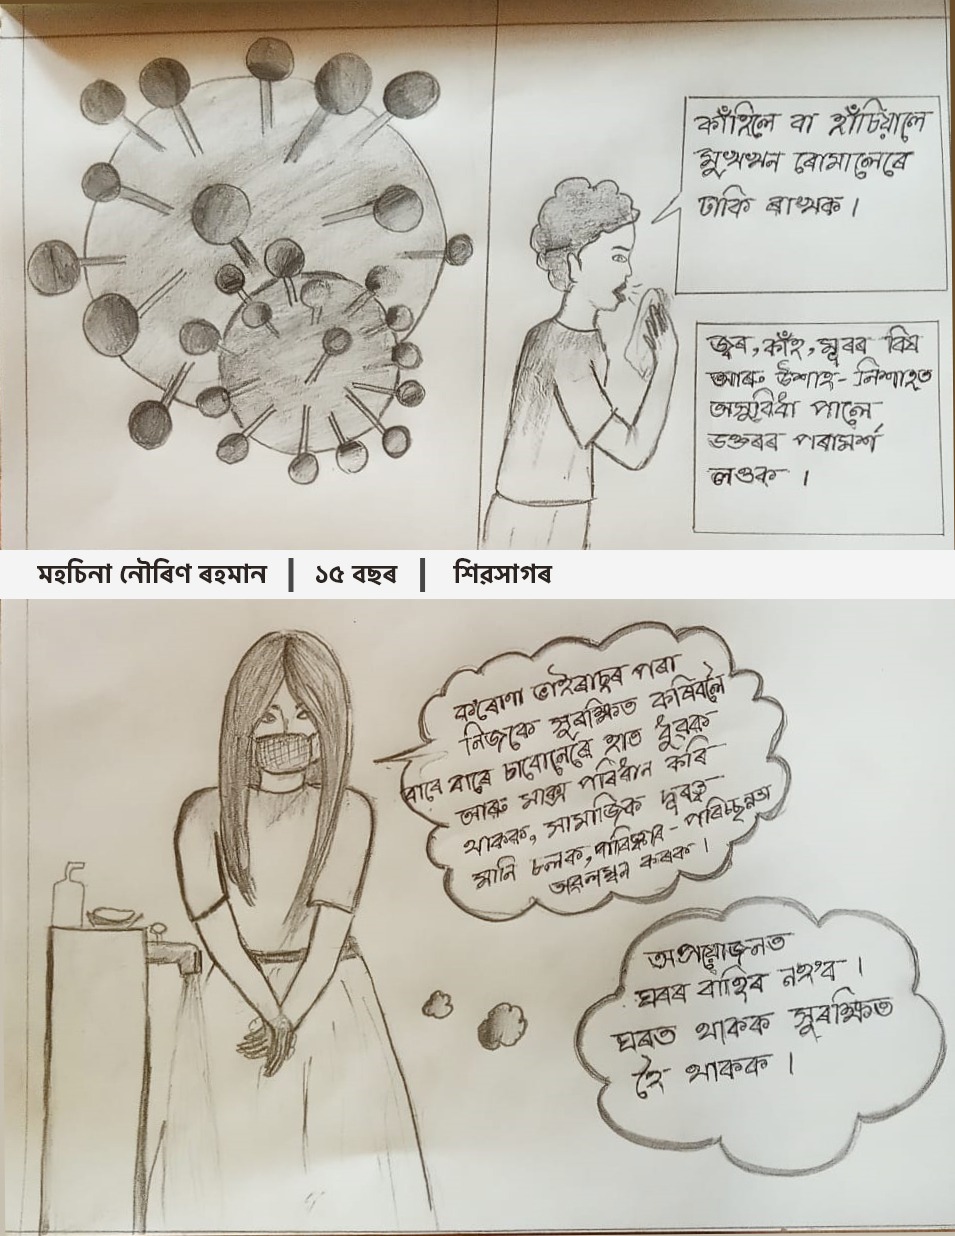 কাঁহিলে বা হাঁচিয়ালে
মুখখন ৰোমালেৰে
ঢাকি ৰাখক ।
জ্বৰ, কাঁহ, মূৰৰ বিষ
আৰু উশাহ-নিশাহত
অসুবিধা পালে
ডক্তৰৰ পৰামৰ্শ
লওক ।
মহচিনা নৌৰিণ ৰহমান | ১৫ বছৰ | শিৱসাগৰ
কৰোণা ভাইৰাছৰ পৰা
নিজকে সুৰক্ষিত কৰিবলৈ
বাৰে বাৰে চাবোনেৰে হাত ধুৱক
আৰু মাস্ক পৰিধান কৰি
থাকক, সামাজিক দূৰত্ব
মানি চলক, পৰিষ্কাৰ-পৰিচ্ছন্নতা
অৱলম্বন কৰক ।
অপ্ৰয়োজনত
ঘৰৰ বাহিৰ নহ'ব ।
ঘৰত থাকক সুৰক্ষিত
হৈ থাকক ।